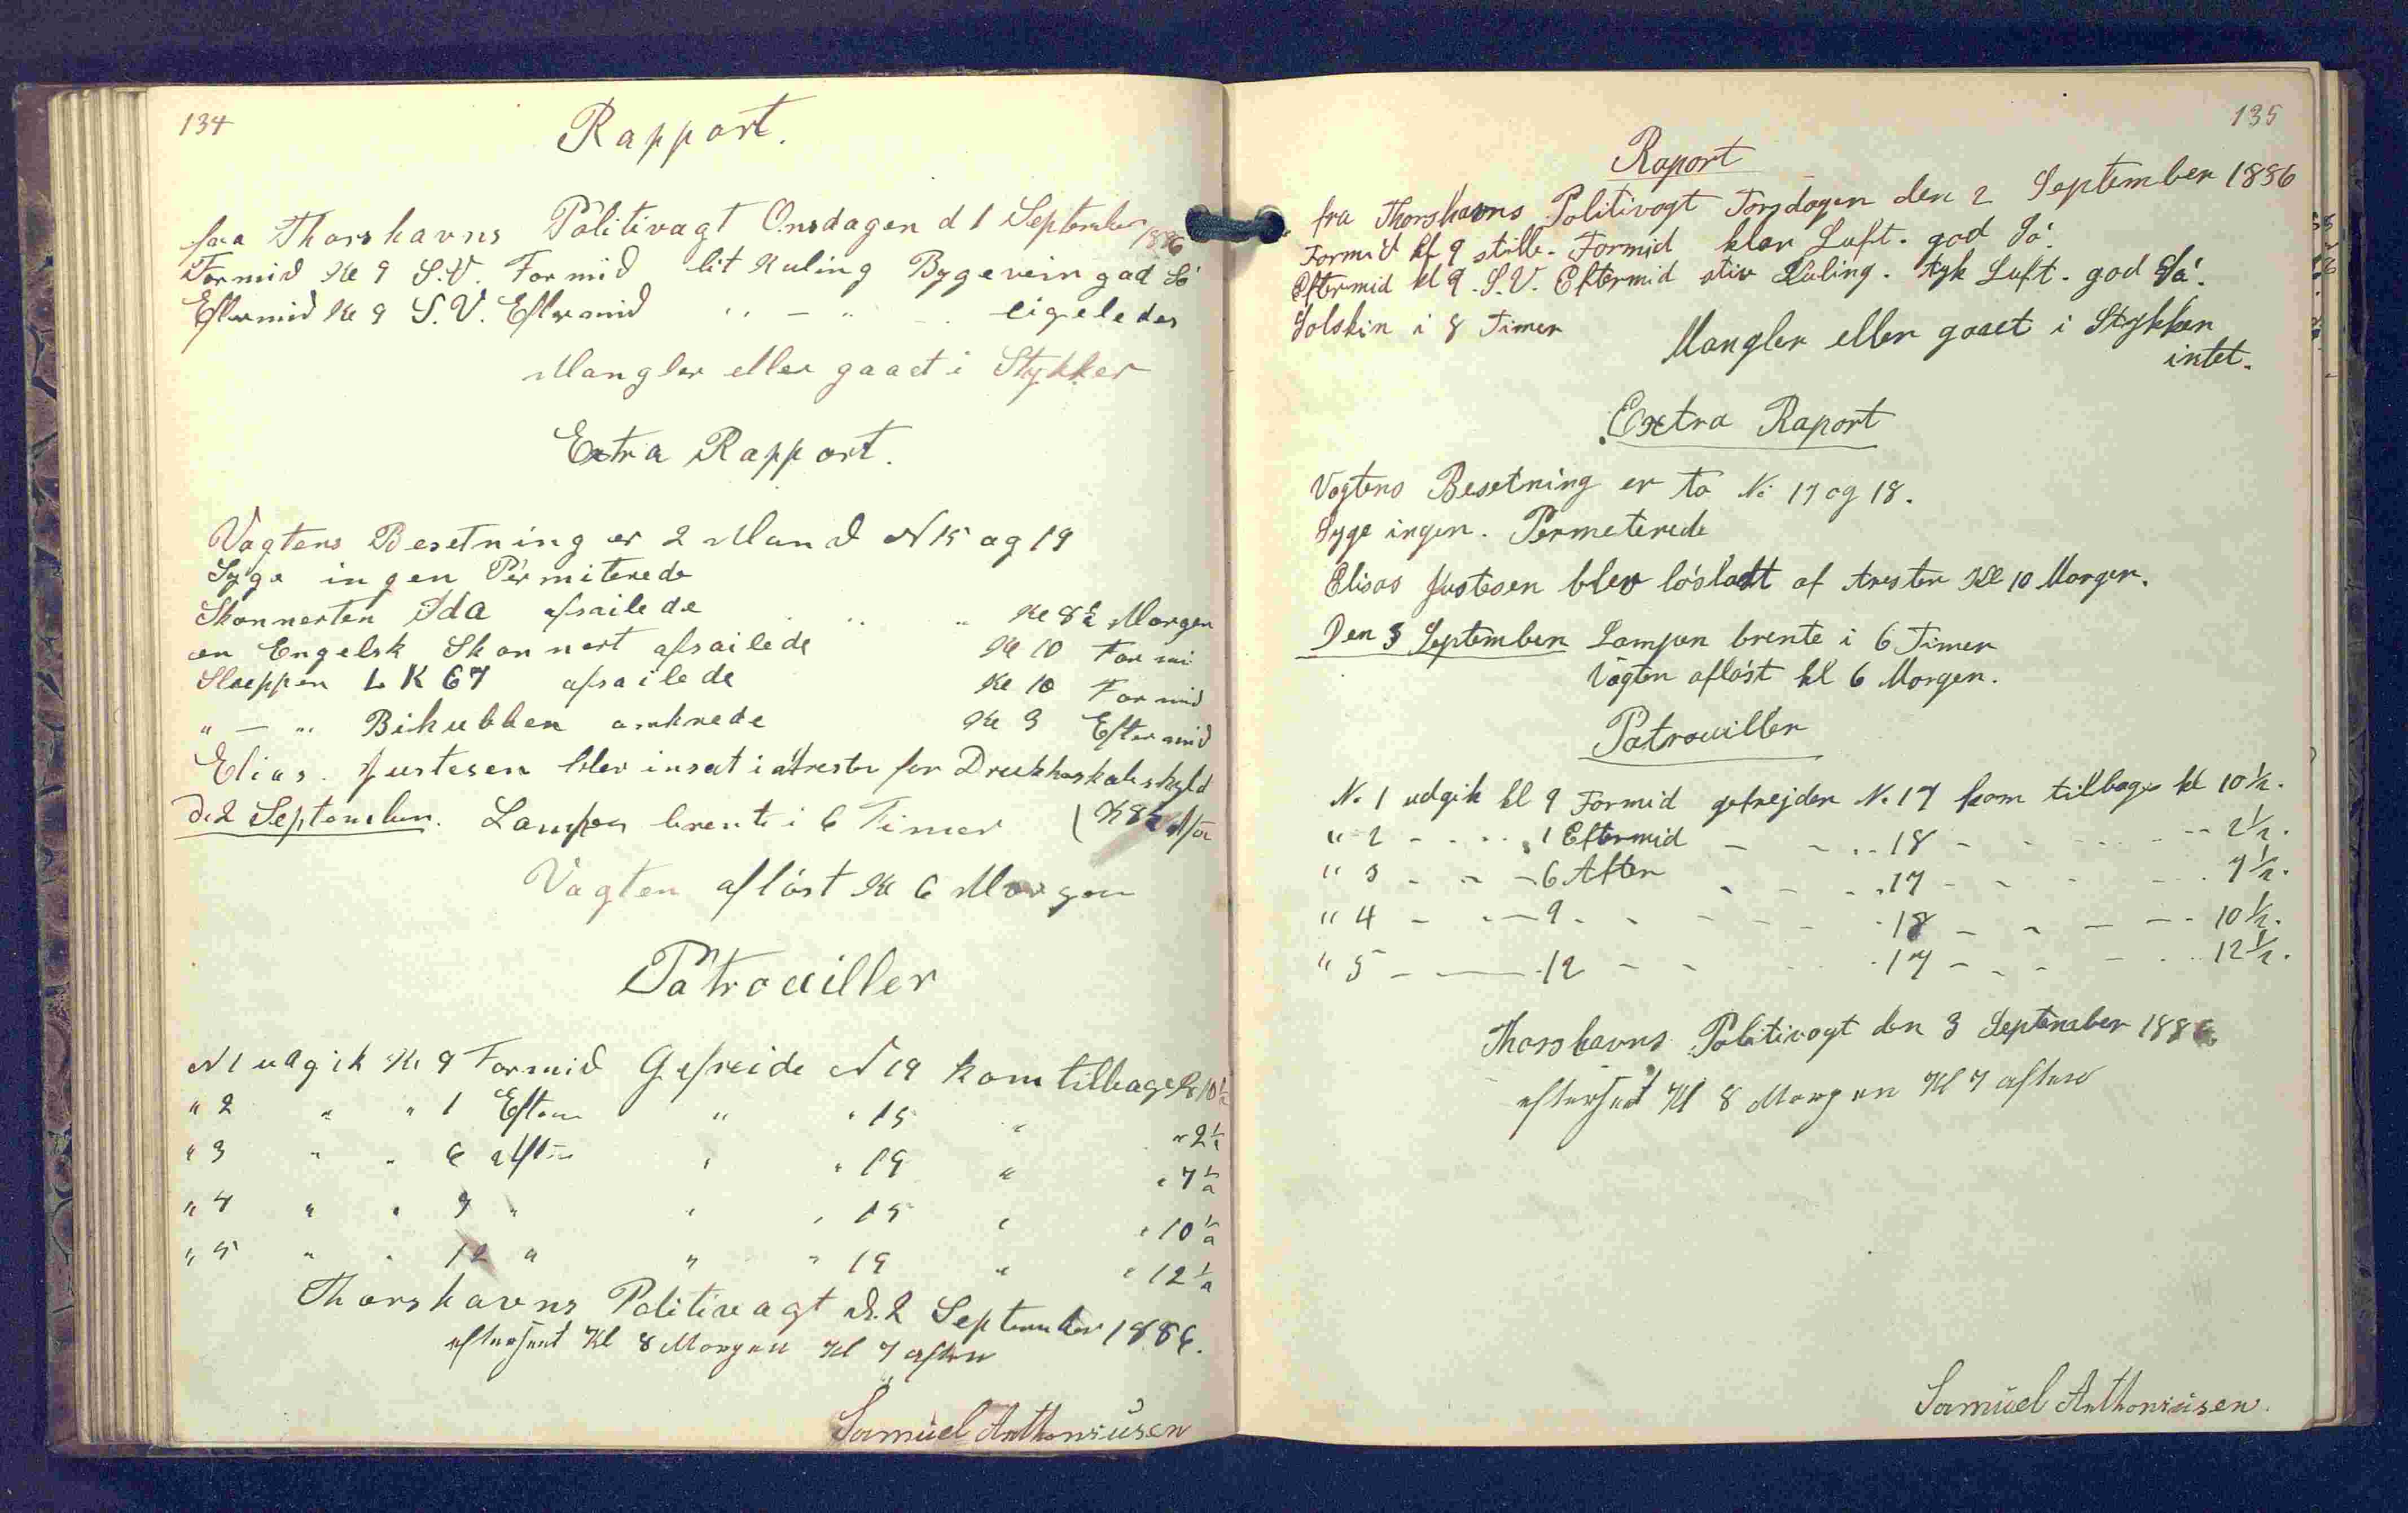 134
Rapport.
fra Thorshavns Politivagt Onsdagen d 1 September 1886
Formid Kl 9 S.V. Formid lit Kuling Bygevein god Sö
Eftermid Kl 9 S.V. Eftermid " — " ligeledes
Mangler eller gaaet i Stykker
Extra Rapport.
Vagtens Besetning er 2 Mand N 15 og 19
Syge ingen Permiterede
Skonnerten Ida afsailede " " Kl 8½ Morgen
en Engelsk Skonnert afsailede Kl 10 Formi
Sluppen L K 67 afsailede Kl 10 Formid
" — " Bikubben ankrede Kl 3 Eftermid
Elias Justesen blev insat i Arester for Drukkaskabs skyld
d. 2 September. Lampen brente i 6 Timer ( K 8½ Aften
Vagten aflöst Kl 6 Morgen
Patrouiller
N 1 udgik Kl 9 Formid Gefreide N 19 kom tilbage Kl 10½
" 2 " " 1 Efterm " " 15 " " 2½
" 3 " " 6 Aften " " 19 " " 7½
" 4 " " 9 " " " 15 " " 10½
" 5 " " 12 " " " 19 " " 12½
Thorshavns Politivagt d. 2 September 1886.
efterseet Kl 8 Morgen Kl 7 aften
Samuel Anthoniusen
135
Raport
fra Thorshavns Politivagt Torsdagen den 2 September 1886
Formid kl 9 stille. Formid klar Luft. god Sö.
Eftermid kl 9. S.V. Eftermid stiv Kuling. tyk Luft. god Sö.
Solskin i 8 Timer
Mangler eller gaaet i Stykker
intet.
Extra Raport
Vagtens Besetning er to No 17 og 18.
Syge ingen. Permeterede
Elisas Justesen blev lösladt af Arester Kl 10 Morgen.
Den 3 September Lampen brente i 6 Timer
Vagten aflöst kl 6 Morgen.
Patrouiller
No. 1 udgik kl 9 Formid gefrejder No. 17 kom tilbage kl 10½.
" 2 - - - - 1 Eftermid - - - - 18 - - - - - 2½.
" 3 - - - 6 Aften - - - - 17 - - - - - 7½.
" 4 - - - 9 - - - - - - 18 - - - - - 10½.
" 5 - — - 12 - - - - 17 - - - - - 12½.
Thorshavns Politivagt den 3 September 1886
efterseet Kl 8 Morgen Kl 7 aften
Samuel Anthoniusen.